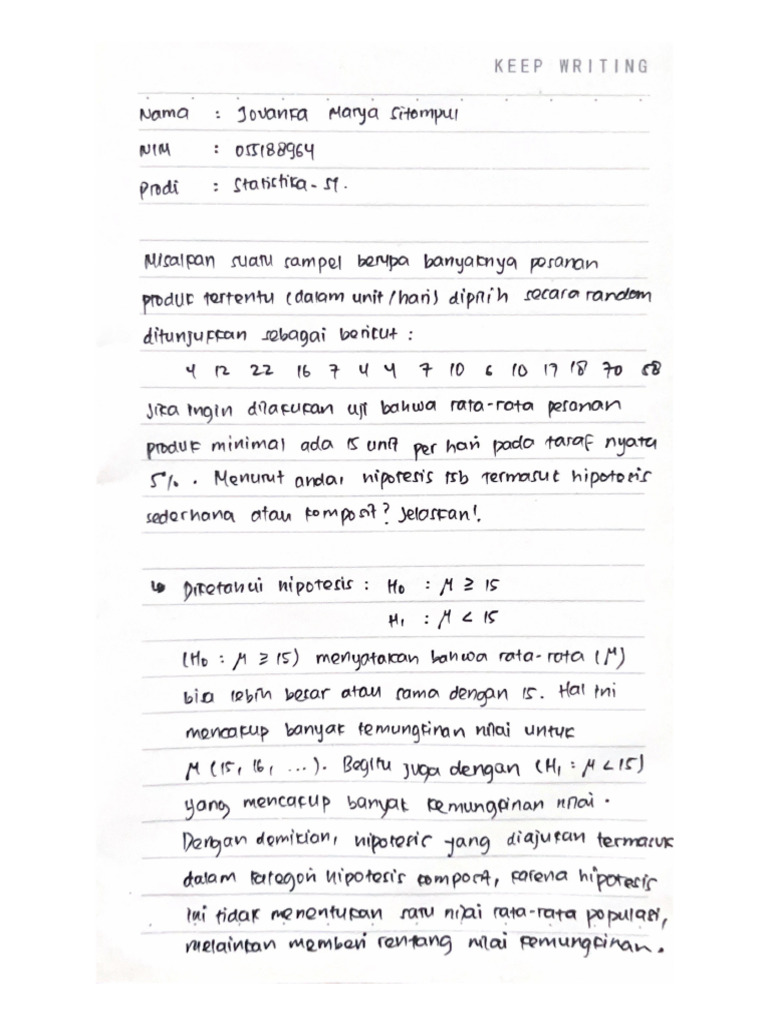 KEEP WRITING
Nama : Jovanka Marya Sitompul
NIM : 055188964
Prodi : Statistika - S1.
Misalkan suatu sampel berupa banyaknya pesanan
produk tertentu (dalam unit/hari) dipilih secara random
ditunjukkan sebagai berikut :
4 12 22 16 7 4 4 7 10 6 10 17 18 70 58
Jika ingin dilakukan uji bahwa rata-rata pesanan
produk minimal ada 15 unit per hari pada taraf nyata
5%. Menurut anda, hipotesis tsb termasuk hipotesis
sederhana atau komposit? Jelaskan!.
↳ Diketahui hipotesis : H₀ : μ ≥ 15
H₁ : μ < 15
(H₀ : μ ≥ 15) menyatakan bahwa rata-rata (μ)
bisa lebih besar atau sama dengan 15. Hal ini
mencakup banyak kemungkinan nilai untuk
μ (15, 16, ...). Begitu juga dengan (H₁ : μ < 15)
yang mencakup banyak kemungkinan nilai.
Dengan demikian, hipotesis yang diajukan termasuk
dalam kategori hipotesis komposit, karena hipotesis
ini tidak menentukan satu nilai rata-rata populasi,
melainkan memberi rentang nilai kemungkinan.